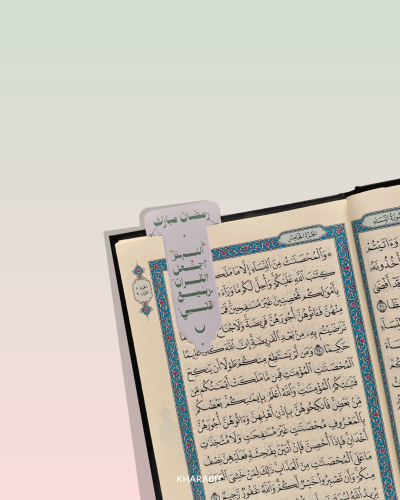 رمضان مبارك
اللهم
اجعل
القرآن
ربيع
قلبي
الجزء الخامس
سورة النساء
وَالْمُحْصَنَاتُ مِنَ النِّسَاءِ إِلَّا مَا مَلَكَتْ
كِتَابَ اللَّهِ عَلَيْكُمْ وَأُحِلَّ لَكُم مَّا وَرَاءَ
بِأَمْوَالِكُم مُّحْصِنِينَ غَيْرَ مُسَافِحِينَ فَمَا
مِنْهُنَّ فَآتُوهُنَّ أُجُورَهُنَّ فَرِيضَةً وَلَا جُنَاحَ
تَرَاضَيْتُم بِهِ مِن بَعْدِ الْفَرِيضَةِ إِنَّ اللَّهَ كَانَ عَلِيمًا
حَكِيمًا ٢٤ وَمَن لَّمْ يَسْتَطِعْ مِنكُمْ طَوْلًا أَن يَنكِحَ
الْمُحْصَنَاتِ الْمُؤْمِنَاتِ فَمِن مَّا مَلَكَتْ أَيْمَانُكُم مِّن
فَتَيَاتِكُمُ الْمُؤْمِنَاتِ وَاللَّهُ أَعْلَمُ بِإِيمَانِكُم بَعْضُكُم
مِّن بَعْضٍ فَانكِحُوهُنَّ بِإِذْنِ أَهْلِهِنَّ وَآتُوهُنَّ أُجُورَهُنَّ
بِالْمَعْرُوفِ مُحْصَنَاتٍ غَيْرَ مُسَافِحَاتٍ وَلَا مُتَّخِذَاتِ
أَخْدَانٍ فَإِذَا أُحْصِنَّ فَإِنْ أَتَيْنَ بِفَاحِشَةٍ فَعَلَيْهِنَّ نِصْفُ
مَا عَلَى الْمُحْصَنَاتِ مِنَ الْعَذَابِ ذَٰلِكَ لِمَنْ خَشِيَ الْعَنَتَ
مِنكُمْ وَأَن تَصْبِرُوا خَيْرٌ لَّكُمْ وَاللَّهُ غَفُورٌ رَّحِيمٌ ٢٥
KHARABIT